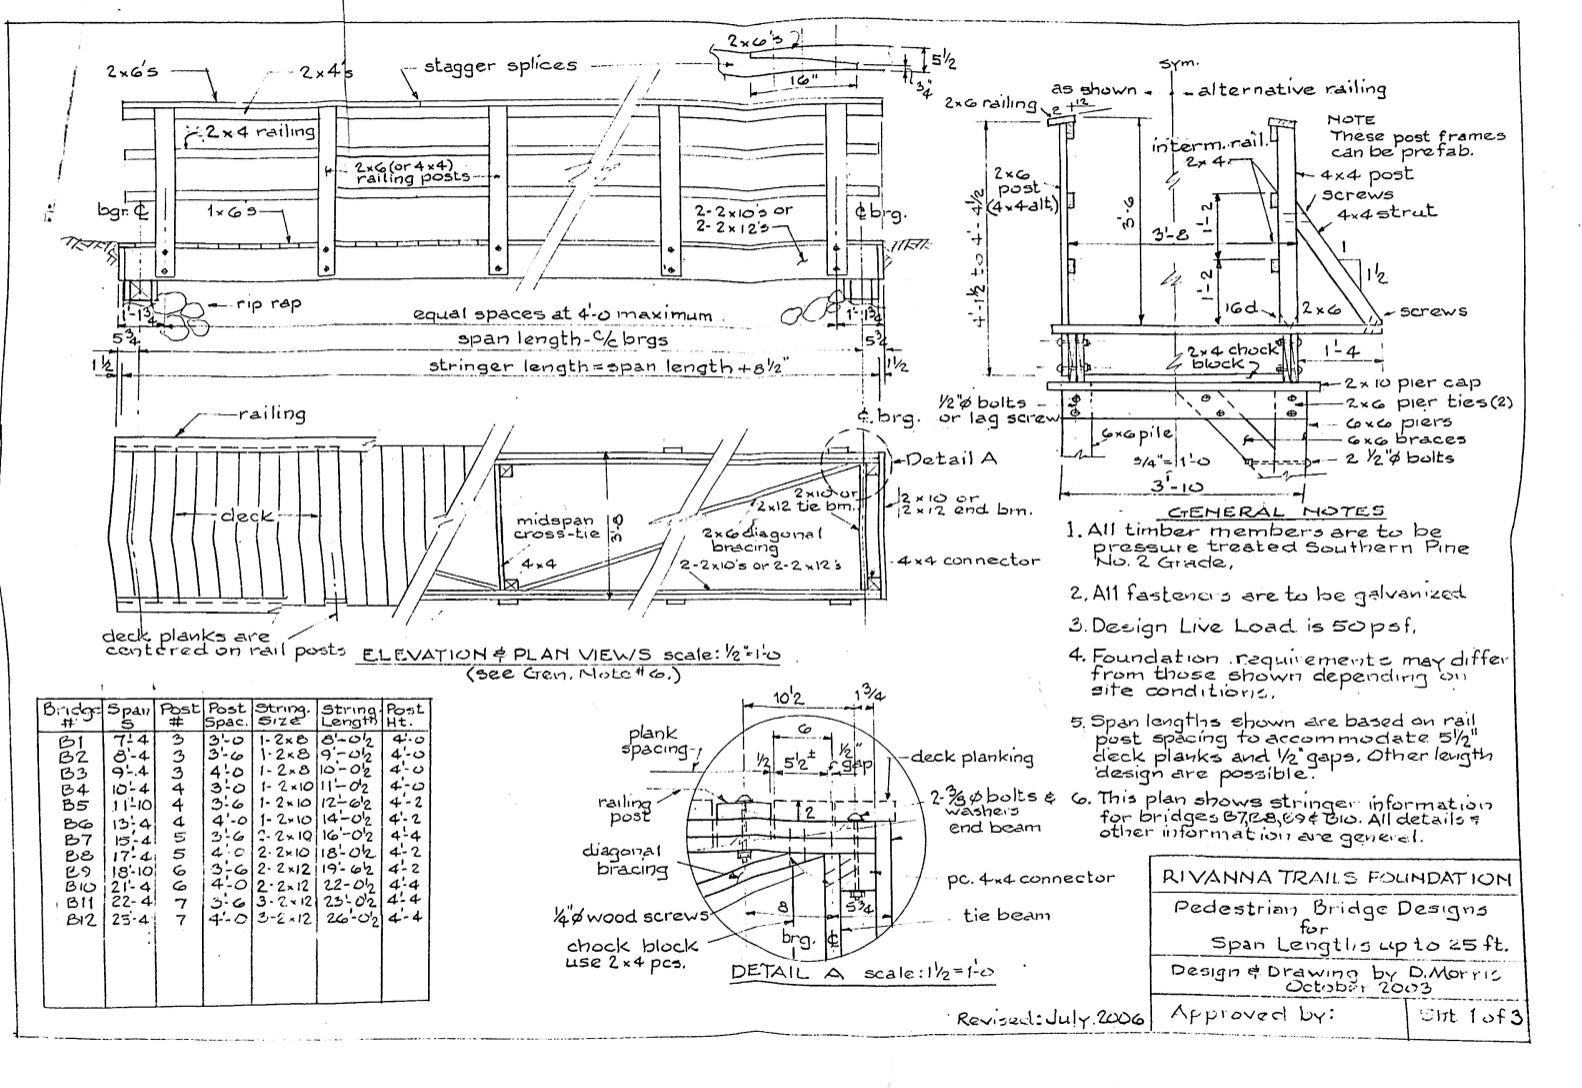 2x6's
2x4's
stagger splices
2x6's
5½
16"
¾"
2x4 railing
2x6 (or 4x4)
railing posts
bgr. ℄
1x6's
2-2x10's or
2-2x12's
℄ brg.
rip rap
1'-1¾
equal spaces at 4'-0 maximum
1'-1¾
5¾
span length-c/c brgs
5¾
1½
stringer length = span length + 8½"
1½
railing
℄ brg.
deck
midspan
cross-tie
3'-8
4x4
2x10 or
2x12 tie bm.
2x6 diagonal
bracing
2-2x10's or 2-2x12's
Detail A
2x10 or
2x12 end bm.
4x4 connector
deck planks are
centered on rail posts
ELEVATION & PLAN VIEWS scale: ½"=1'-0
(see Gen. Note #6.)
sym.
as shown
alternative railing
2x6 railing
2
12
NOTE
These post frames
can be prefab.
interm. rail.
2x4
2x6
post
(4x4 alt.)
4x4 post
screws
4x4 strut
4'-1½ to 4'-4½
3'-6
3'-8
1'-2
1'-2
1
1½
16d
2x6
screws
2x4 chock
block
1'-4
2x10 pier cap
½"ø bolts
or lag screw
2x6 pier ties (2)
6x6 piers
6x6 pile
6x6 braces
¾"=1'-0
2 ½"ø bolts
3'-10
GENERAL NOTES
1. All timber members are to be
pressure treated Southern Pine
No. 2 Grade.
2. All fasteners are to be galvanized
3. Design Live Load is 50 psf.
4. Foundation requirements may differ
from those shown depending on
site conditions.
5. Span lengths shown are based on rail
post spacing to accommodate 5½"
deck planks and ½" gaps. Other length
design are possible.
6. This plan shows stringer information
for bridges B7, B8, B9 & B10. All details &
other information are general.
Bridge # Span S Post # Post Spac. String. Size String. Length Post Ht.
B1 7'-4 3 3'-0 1-2x8 8'-0½ 4'-0
B2 8'-4 3 3'-6 1-2x8 9'-0½ 4'-0
B3 9'-4 3 4'-0 1-2x8 10'-0½ 4'-0
B4 10'-4 4 3'-0 1-2x10 11'-0½ 4'-0
B5 11'-10 4 3'-6 1-2x10 12'-6½ 4'-2
B6 13'-4 4 4'-0 1-2x10 14'-0½ 4'-2
B7 15'-4 5 3'-6 2-2x10 16'-0½ 4'-4
B8 17'-4 5 4'-0 2-2x10 18'-0½ 4'-2
B9 18'-10 6 3'-6 2-2x12 19'-6½ 4'-2
B10 21'-4 6 4'-0 2-2x12 22'-0½ 4'-4
B11 22'-4 7 3'-6 3-2x12 23'-0½ 4'-4
B12 25'-4 7 4'-0 3-2x12 26'-0½ 4'-4
10½
1¾
plank
spacing
6
½
5½±
½"
gap
deck planking
railing
post
2
2-⅜ø bolts &
washers
end beam
diagonal
bracing
pc. 4x4 connector
¼"ø wood screws
8
5¾
tie beam
chock block
use 2x4 pcs.
brg. ℄
DETAIL A scale: 1½=1'-0
RIVANNA TRAILS FOUNDATION
Pedestrian Bridge Designs
for
Span Lengths up to 25 ft.
Design & Drawing by D. Morris
October 2003
Revised: July 2006
Approved by:
Sht 1 of 3